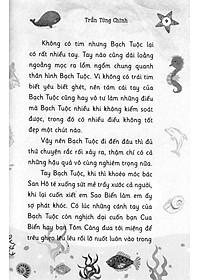 Trần Tùng Chinh
Không có tim nhưng Bạch Tuộc lại
có rất nhiều tay. Tay nào cũng dài loằng
ngoằng mọc ra lổm ngổm chung quanh
thân hình Bạch Tuộc. Vì không có trái tim
biết yêu biết ghét, nên tám cái tay của
Bạch Tuộc cũng hay vô tư làm những điều
mà Bạch Tuộc nhiều khi không kiểm soát
được, trong đó có nhiều điều không tốt
đẹp một chút nào.
Vậy nên Bạch Tuộc đi đến đâu thì đủ
thứ chuyện rắc rối xảy ra, thậm chí có cả
những hậu quả vô cùng nghiêm trọng nữa.
Tay Bạch Tuộc, khi thì khoèo móc bác
San Hô té xuống sứt mẻ trầy xước cả người,
khi lại cuốn xiết em Sao Biển làm em ấy
sợ phát khóc. Có lúc những cánh tay của
Bạch Tuộc còn nghịch dại cuốn bạn Cua
Biển hay bạn Tôm Càng đưa tới miệng để
trêu ghẹo lêu lêu rồi lỡ nuốt luôn vào trong